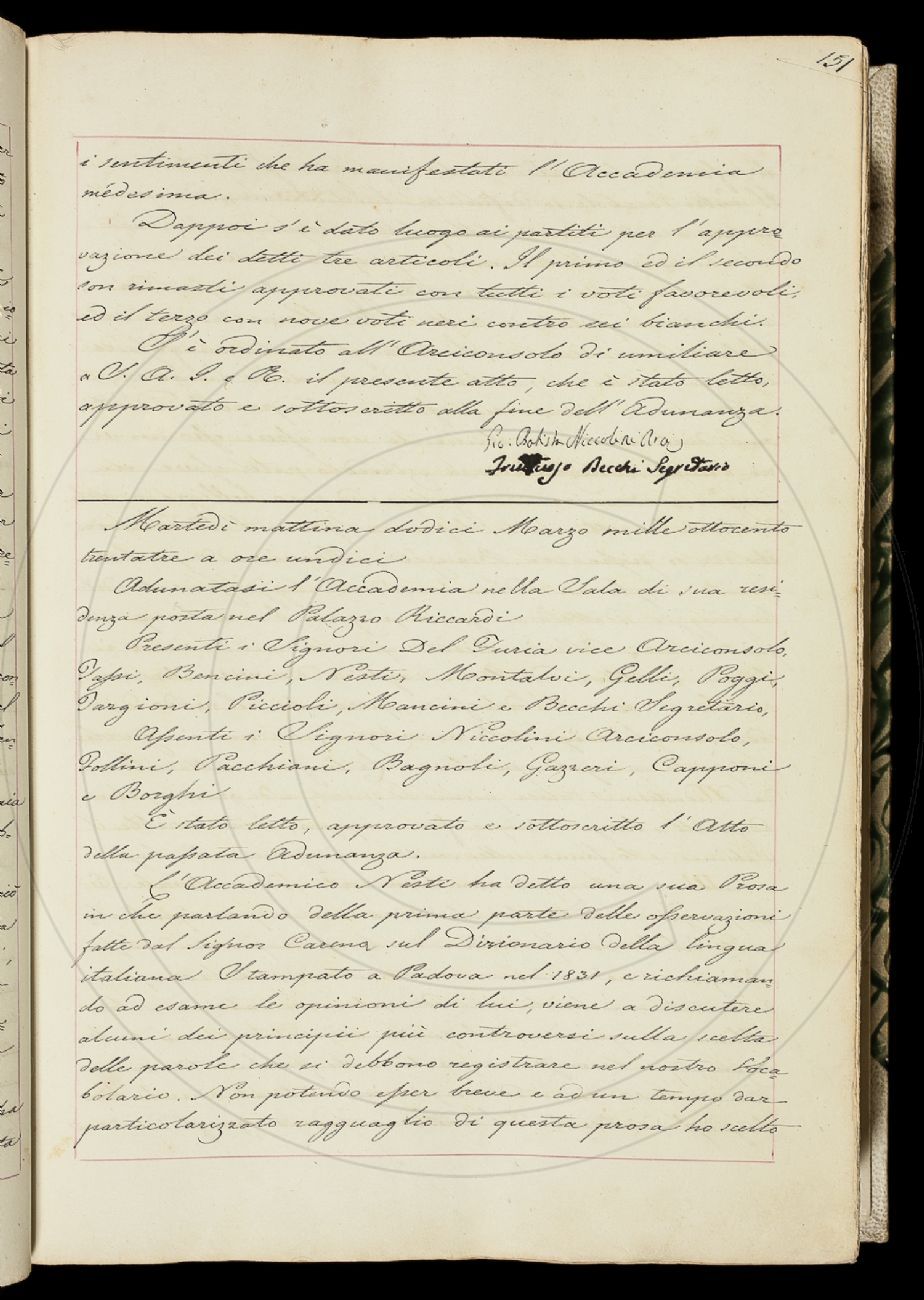 151
i sentimenti che ha manifestati l'Accademia
medesima.
Dappoi s'è dato luogo ai partiti per l'appro-
vazione dei detti tre articoli. Il primo ed il secondo
son rimasti approvati con tutti i voti favorevoli,
ed il terzo con nove voti neri contro sei bianchi.
S'è ordinato all'Arciconsolo di umiliare
a S. A. I. e R. il presente atto, che è stato letto,
approvato e sottoscritto alla fine dell'Adunanza.
Gio. Batista Niccolini
Fruttuoso Becchi Segretario
Martedì mattina dodici Marzo mille ottocento
trentatre a ore undici
Adunatasi l'Accademia nella Sala di sua resi-
denza posta nel Palazzo Riccardi
Presenti i Signori Del Furia vice Arciconsolo,
Tassi, Bencini, Nesti, Montalvi, Gelli, Poggi,
Targioni, Piccioli, Mancini e Becchi Segretario,
Assenti i Signori Niccolini Arciconsolo,
Follini, Pacchiani, Bagnoli, Gazzeri, Capponi
e Borghi
È stato letto, approvato e sottoscritto l'Atto
della passata Adunanza.
L'Accademico Nesti ha detto una sua Prosa
in che parlando della prima parte delle osservazioni
fatte dal Signor Carena sul Dizionario della lingua
italiana Stampato a Padova nel 1831, e richiaman-
do ad esame le opinioni di lui, viene a discutere
alcuni dei principii più controversi sulla scelta
delle parole che si debbono registrare nel nostro Voca-
bolario. Non potendo esser breve e ad un tempo dar
particolarizzato ragguaglio di questa prosa ho scelto